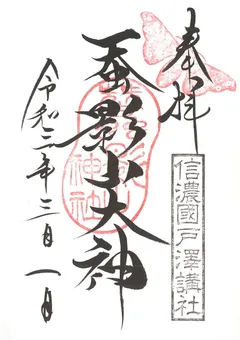 奉拝
信濃國戸澤講社
蚕影山大神
令和三年三月一日